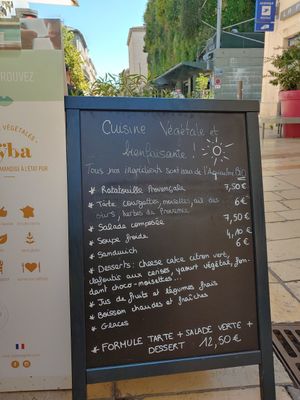 ROUVEZ
VÉGÉTALES
ÿba
MANDISE À L'ÉTAT PUR
Cuisine Végétale et
bienfaisante !
Tous nos ingrédients sont issus de l'Agriculture Bio
* Ratatouille Provençale 7,50€
* Tarte courgettes, noisettes, ail des
ours, herbes de Provence 6€
* Salade composée 7,50€
* Soupe froide 4,10€
* Sandwich 6€
* Desserts : cheese cake citron vert,
clafoutis aux cerises, yaourt végétal, fon-
dant choco-noisettes...
* Jus de fruits et légumes frais
* Boisson chaudes et fraîches
* Glaces
* FORMULE TARTE + SALADE VERTE +
DESSERT 12,50€